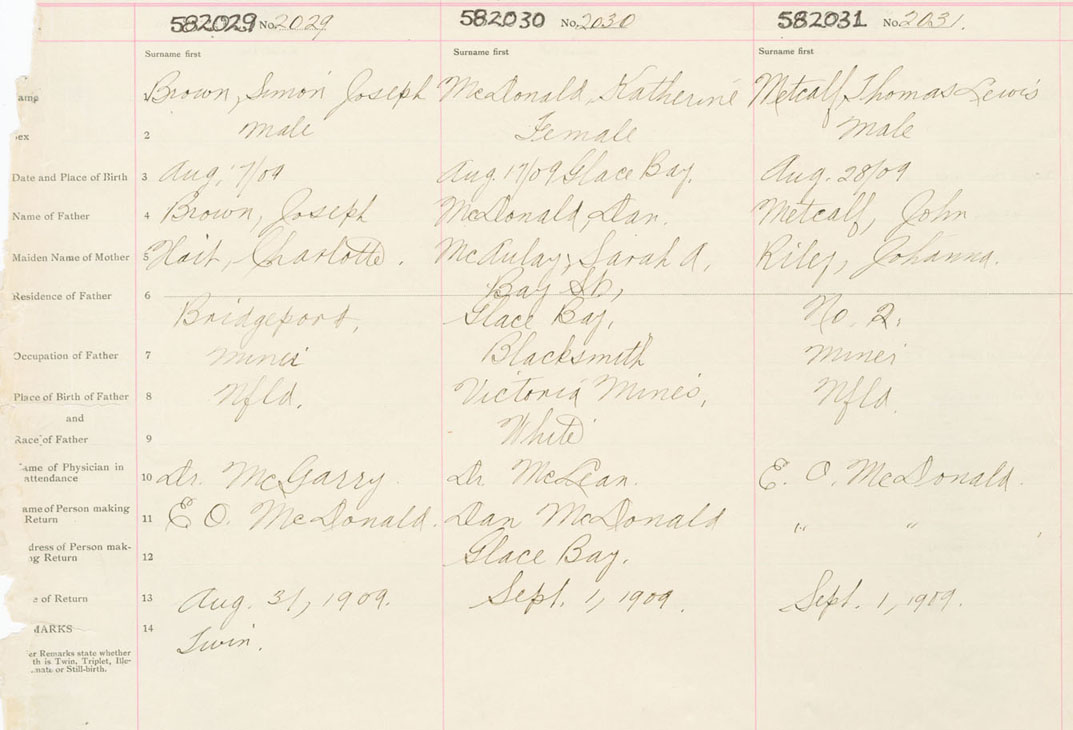 582029 No. 2029 582030 No. 2030 582031 No. 2031.
Surname first Surname first Surname first
ame Brown, Simon Joseph McDonald, Katherine Metcalf, Thomas Lewis
ex 2 Male Female Male
Date and Place of Birth 3 Aug. 17/09 Aug. 17/09 Glace Bay. Aug. 28/09
Name of Father 4 Brown, Joseph McDonald, Dan. Metcalf, John
Maiden Name of Mother 5 Charlotte. McAulay, Sarah A. Riley, Johanna.
Bay St.,
Residence of Father 6 Bridgeport, Glace Bay, No. 2.
Occupation of Father 7 Miner Blacksmith Miner
Place of Birth of Father 8 Nfld. Victoria Mines, Nfld.
and
Race of Father 9 White
ame of Physician in
attendance 10 Dr. McGarry. Dr McLean. E. O. McDonald.
ame of Person making
Return 11 E O. McDonald. Dan McDonald " "
dress of Person mak-
ng Return 12 Glace Bay.
e of Return 13 Aug. 31, 1909. Sept. 1, 1909. Sept. 1, 1909.
MARKS 14 Twin.
er Remarks state whether
th is Twin, Triplet, Ille-
mate or Still-birth.